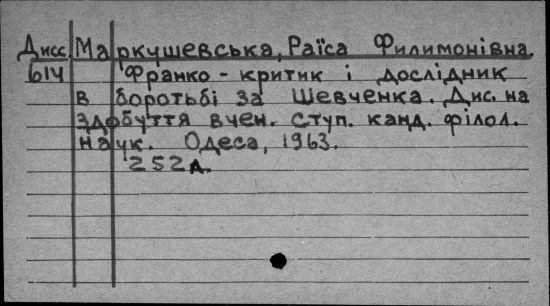 Дисс Маркушевська, Раїса Филимонівна.
614 Франко - критик і дослідник
в боротьбі за Шевченка. Дис. на
здобуття вчен. ступ. канд. філол.
наук. Одеса, 1963.
252л.